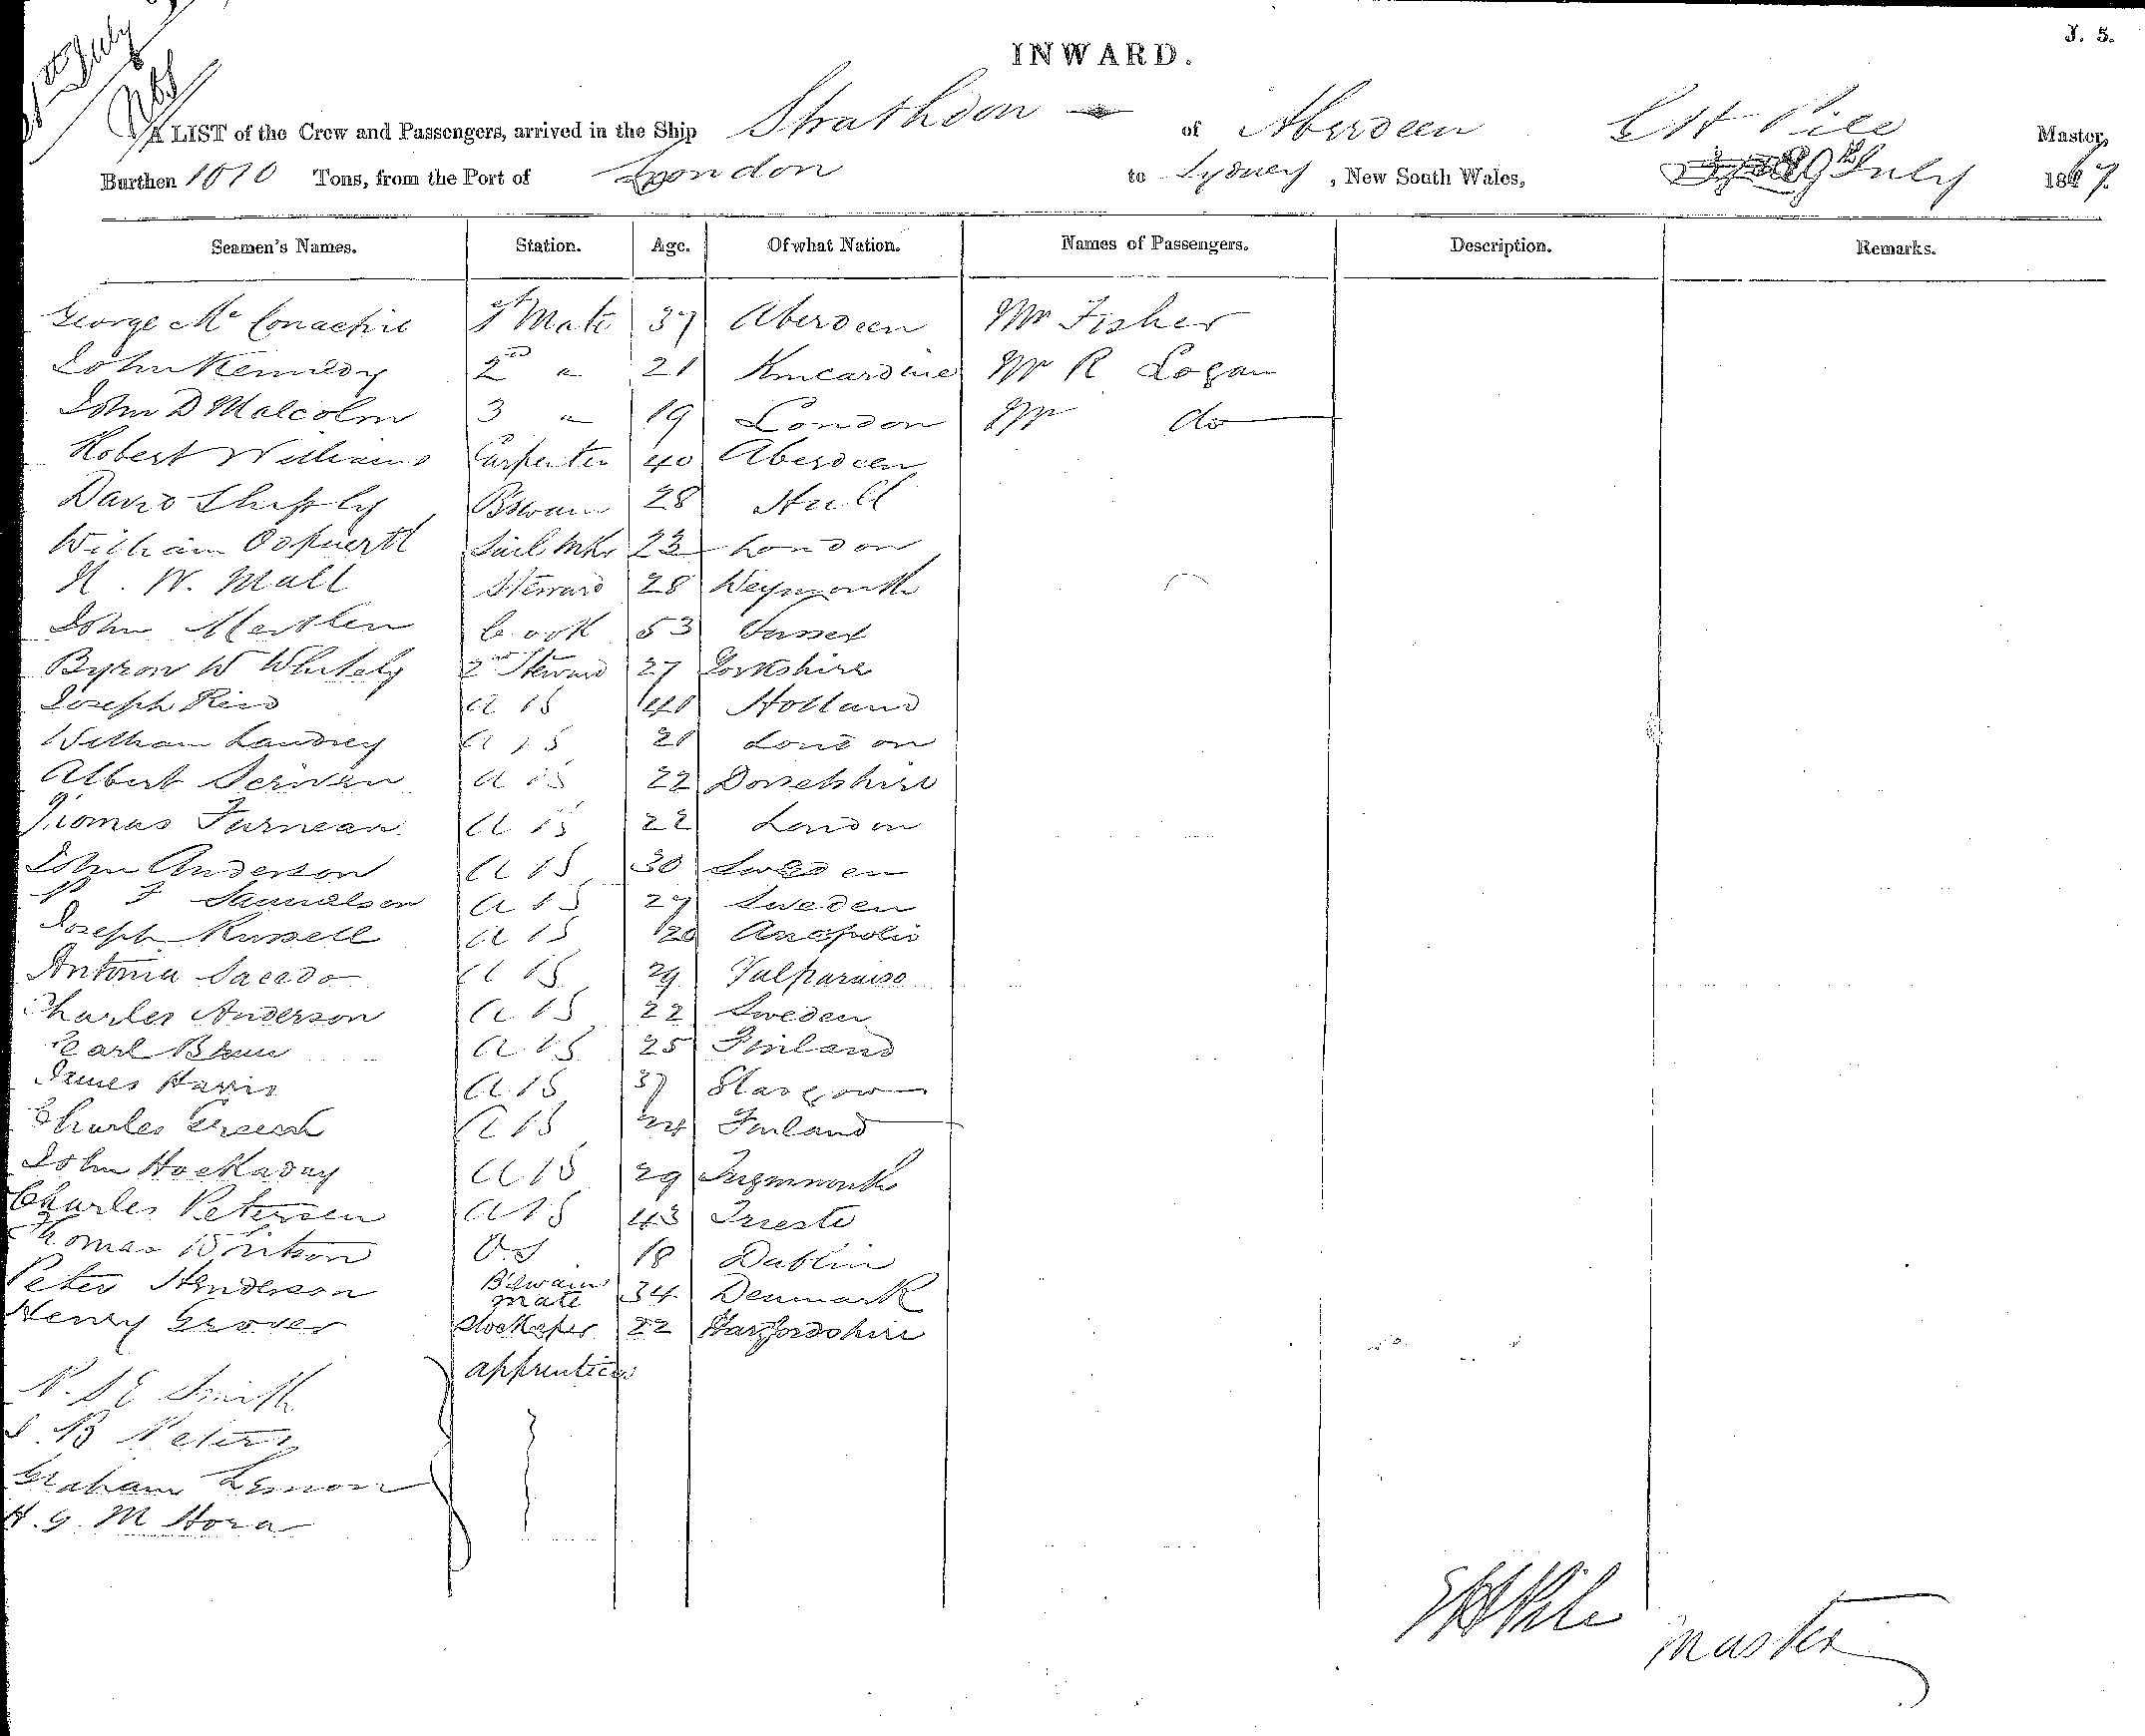 J. 5.
INWARD.
July
A LIST of the Crew and Passengers, arrived in the Ship Strathdon of Aberdeen E H Pile Master,
Burthen 1010 Tons, from the Port of London to Sydney, New South Wales, 29th July 1867
Seamen's Names. Station. Age. Of what Nation. Names of Passengers. Description. Remarks.
George Mc Conachie 1st Mate 37 Aberdeen Mr Fisher
John Kennedy 2nd " 21 Kincardine Mr R Logan
John D Malcolm 3 " 19 London Mr do
Robert Williams Carpenter 40 Aberdeen
David Shiply B'swain 28 Hull
William Sail Mkr 23 London
W. Mall Steward 28 Weymouth
John Cook 53 Sussex
Byron W Whitely 2nd Steward 27 Yorkshire
Joseph Reid A B 41 Holland
William Landrey A B 21 London
Albert Scriven A B 22 Dorsetshire
Thomas Furneau A B 22 London
John Anderson A B 30 Sweden
P F Samuelson A B 27 Sweden
Joseph Russell A B 20 Anapolis
Antonia Sacedo A B 29 Valparaiso
Charles Anderson A B 22 Sweden
Carl A B 25 Finland
James Harris A B 37 Glasgow
Charles A B 24 Finland
John Hockaday A B 29 Teignmouth
Charles Petersen A B 43 Trieste
Thomas O.S 18 Dublin
Peter Henderson B'swain mate 34 Denmark
Henry Grover Storekeper 22 Hartfordshire
N. S E Smith apprentices
J. B Peters
Graham Lemon
H. G. M Hora
E H Pile
Master